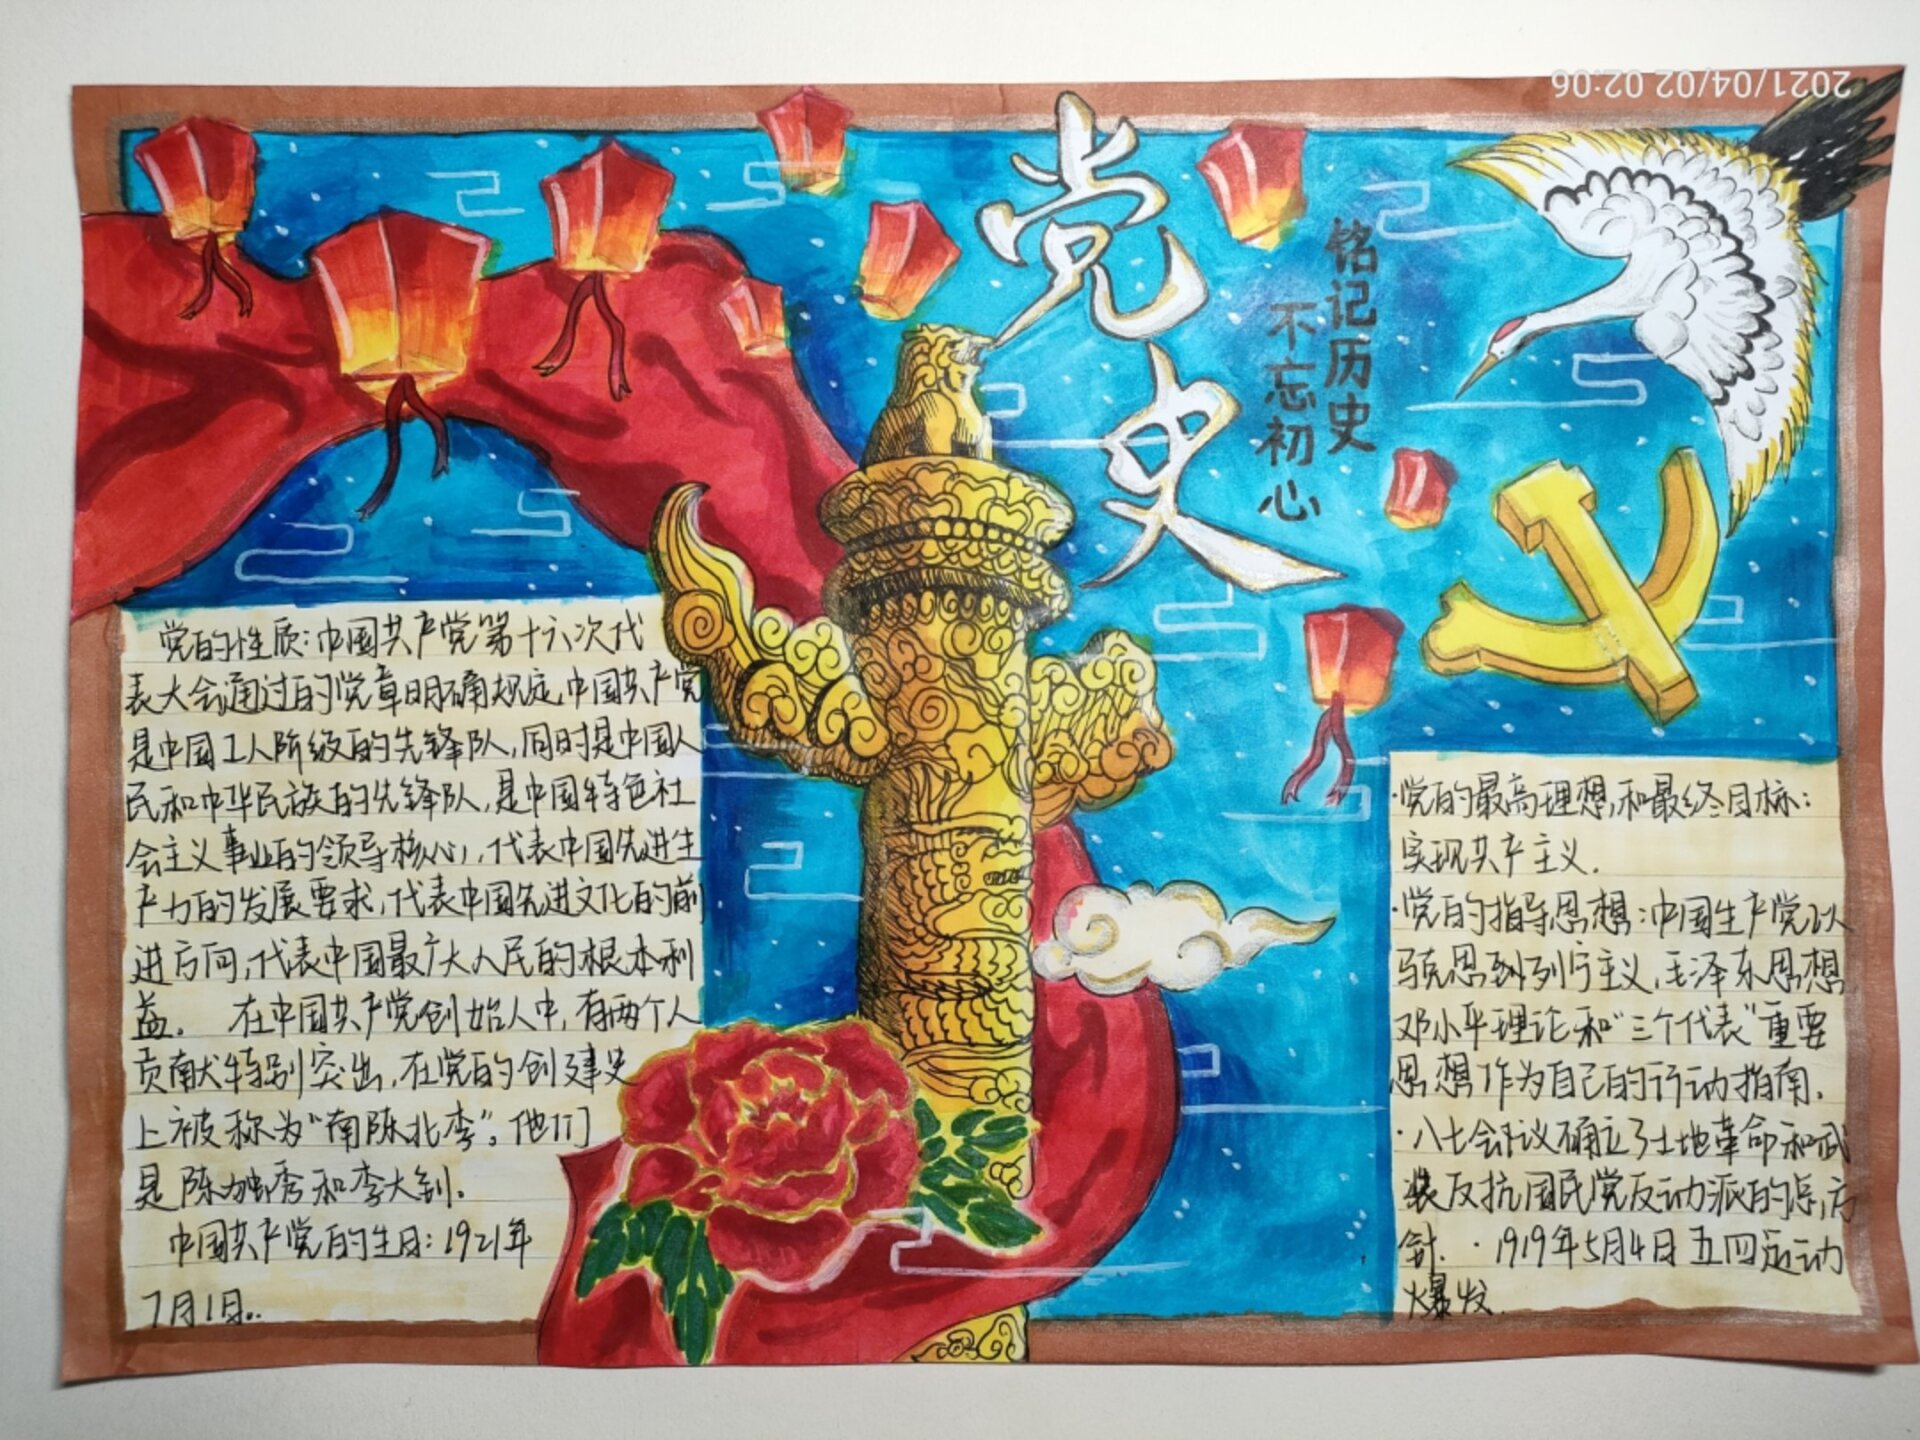 2021/04/02 02:06
党史
铭记历史
不忘初心
党的性质:中国共产党第十六次代
表大会通过的党章明确规定,中国共产党
是中国工人阶级的先锋队,同时是中国人
民和中华民族的先锋队,是中国特色社
会主义事业的领导核心,代表中国先进生
产力的发展要求,代表中国先进文化的前
进方向,代表中国最广大人民的根本利
益. 在中国共产党创始人中,有两个人
贡献特别突出,在党的创建史
上被称为“南陈北李”。他们
是陈独秀和李大钊.
中国共产党的生日:1921年
7月1日..
·党的最高理想,和最终目标:
实现共产主义.
·党的指导思想:中国生产党以
马克思列宁主义,毛泽东思想,
邓小平理论和“三个代表”重要
思想作为自己的行动指南.
·八七会议确立了土地革命和武
装反抗国民党反动派的总方
针. ·1919年5月4日五四运动
爆发.